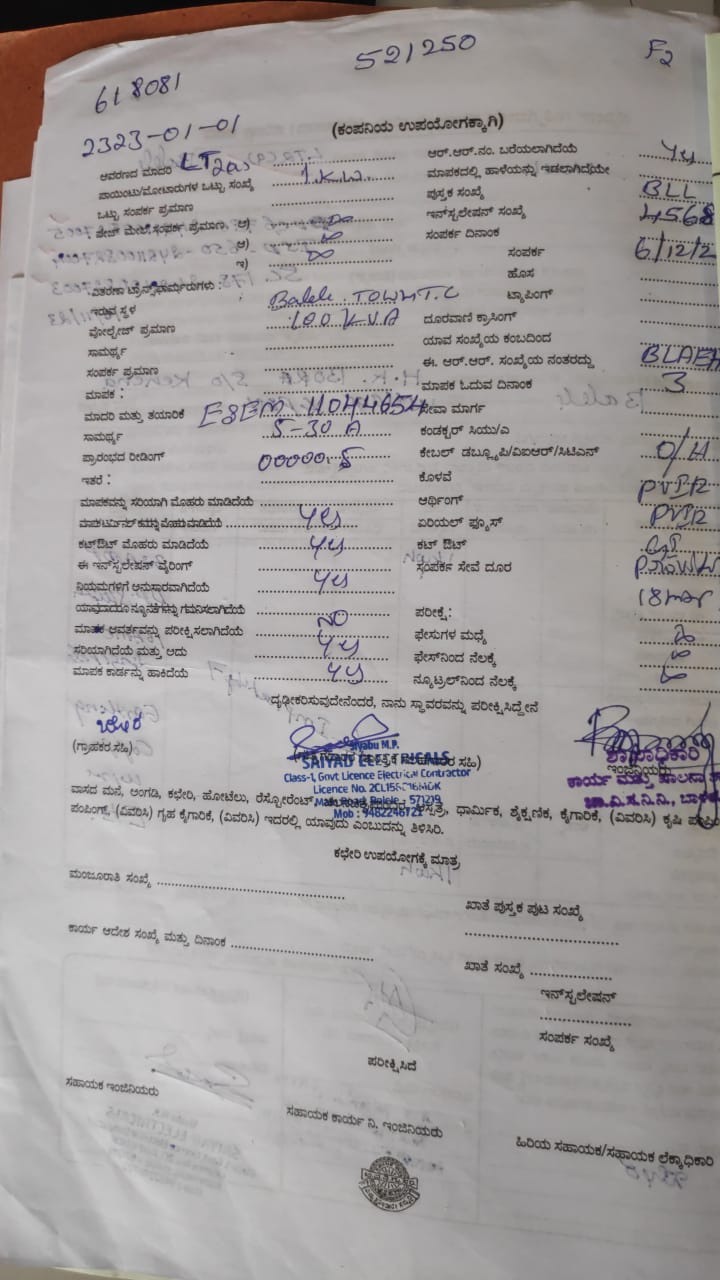 521250
F2
618081
2323-01-01
(ಕಂಪನಿಯ ಉಪಯೋಗಕ್ಕಾಗಿ)
ಆವರಣದ ಮಾದರಿ LT2a
ಪಾಯಿಂಟು/ಮೋಟಾರುಗಳ ಒಟ್ಟು ಸಂಖ್ಯೆ 1.K.W.
ಒಟ್ಟು ಸಂಪರ್ಕ ಪ್ರಮಾಣ
ಪೇಜ್ ಮೇಲೆ ಸಂಪರ್ಕ ಪ್ರಮಾಣ, ಅ)
ಆ)
ಇ)
ವಿತರಣಾ ಟ್ರಾನ್ಸ್‌ಫಾರ್ಮರುಗಳು :
ಇರುವ ಸ್ಥಳ Balele TOWN T.C
ವೋಲ್ಟೇಜ್ ಪ್ರಮಾಣ 100 K.V.A
ಸಾಮರ್ಥ್ಯ
ಸಂಪರ್ಕ ಪ್ರಮಾಣ
ಮಾಪಕ :
ಮಾದರಿ ಮತ್ತು ತಯಾರಿಕೆ ESEM 11044654
ಸಾಮರ್ಥ್ಯ 5-30 A
ಪ್ರಾರಂಭದ ರೀಡಿಂಗ್ 00000.5
ಇತರೆ :
ಮಾಪಕವನ್ನು ಸರಿಯಾಗಿ ಮೊಹರು ಮಾಡಿದೆಯೆ
ಮಾಪಕ ಟರ್ಮಿನಲ್ ಕವನ್ನು ಮೊಹರು ಮಾಡಿದೆಯೆ Yes
ಕಟ್‌ಔಟ್ ಮೊಹರು ಮಾಡಿದೆಯೆ Yes
ಈ ಇನ್‌ಸ್ಟಲೇಷನ್ ವೈರಿಂಗ್
ನಿಯಮಗಳಿಗೆ ಅನುಸಾರವಾಗಿದೆಯೆ Yes
ಯಾವುದಾದರೂ ನ್ಯೂನತೆಗಳನ್ನು ಗಮನಿಸಲಾಗಿದೆಯೆ
ಮಾಪಕ ಆವರ್ತವನ್ನು ಪರೀಕ್ಷಿಸಲಾಗಿದೆಯೆ NO
ಸರಿಯಾಗಿದೆಯೆ ಮತ್ತು ಅದು Yes
ಮಾಪಕ ಕಾರ್ಡನ್ನು ಹಾಕಿದೆಯೆ Yes
ಆರ್.ಆರ್.ನಂ. ಬರೆಯಲಾಗಿದೆಯೆ Yes
ಮಾಪಕದಲ್ಲಿ ಹಾಳೆಯನ್ನು ಇಡಲಾಗಿದೆಯೇ
ಪುಸ್ತಕ ಸಂಖ್ಯೆ BLL
ಇನ್‌ಸ್ಟಲೇಷನ್ ಸಂಖ್ಯೆ 4568
ಸಂಪರ್ಕ ದಿನಾಂಕ
ಸಂಪರ್ಕ 6/12/2
ಹೊಸ
ಟ್ಯಾಪಿಂಗ್
ದೂರವಾಣಿ ಕ್ರಾಸಿಂಗ್
ಯಾವ ಸಂಖ್ಯೆಯ ಕಂಬದಿಂದ
ಈ. ಆರ್.ಆರ್. ಸಂಖ್ಯೆಯ ನಂತರದ್ದು BLAEH
ಮಾಪಕ ಓದುವ ದಿನಾಂಕ 3
ಸೇವಾ ಮಾರ್ಗ
ಕಂಡಕ್ಟರ್ ಸಿಯು/ಎ
ಕೇಬಲ್ ಡಬ್ಲ್ಯೂಪಿ/ವಿಐಆರ್/ಸಿಟಿಎನ್ O/H
ಕೊಳವೆ
ಆರ್ಥಿಂಗ್ PVIR
ಏರಿಯಲ್ ಫ್ಯೂಸ್ PVIR
ಕಟ್ ಔಟ್
ಸಂಪರ್ಕ ಸೇವೆ ದೂರ
18 mtr
ಪರೀಕ್ಷೆ:
ಫೇಸುಗಳ ಮಧ್ಯೆ
ಫೇಸ್‌ನಿಂದ ನೆಲಕ್ಕೆ
ನ್ಯೂಟ್ರಲ್‌ನಿಂದ ನೆಲಕ್ಕೆ
ದೃಢೀಕರಿಸುವುದೇನೆಂದರೆ, ನಾನು ಸ್ಥಾವರವನ್ನು ಪರೀಕ್ಷಿಸಿದ್ದೇನೆ
(ಗ್ರಾಹಕರ ಸಹಿ)
Siyabu M.P.
SAIYAD ELECTRICALS
Class-1, Govt Licence Electrical Contractor
Main Road, Balele - 571219
Mob : 9482246721
ಇಂಜಿನಿಯರು
ಶಾಖಾಧಿಕಾರಿ
ಕಾರ್ಯ ಮತ್ತು ಪಾಲನಾ
ಚಾ.ವಿ.ಸ.ನಿ.ನಿ.,
ವಾಸದ ಮನೆ, ಅಂಗಡಿ, ಕಛೇರಿ, ಹೋಟೆಲು, ರೆಸ್ಟೋರೆಂಟ್, ಆಸ್ಪತ್ರೆ, ಧಾರ್ಮಿಕ, ಶೈಕ್ಷಣಿಕ, ಕೈಗಾರಿಕೆ, (ವಿವರಿಸಿ) ಕೃಷಿ
ಪಂಪಿಂಗ್, (ವಿವರಿಸಿ) ಗೃಹ ಕೈಗಾರಿಕೆ, (ವಿವರಿಸಿ) ಇದರಲ್ಲಿ ಯಾವುದು ಎಂಬುದನ್ನು ತಿಳಿಸಿರಿ.
ಕಛೇರಿ ಉಪಯೋಗಕ್ಕೆ ಮಾತ್ರ
ಮಂಜೂರಾತಿ ಸಂಖ್ಯೆ
ಖಾತೆ ಪುಸ್ತಕ ಪುಟ ಸಂಖ್ಯೆ
ಕಾರ್ಯ ಆದೇಶ ಸಂಖ್ಯೆ ಮತ್ತು ದಿನಾಂಕ
ಖಾತೆ ಸಂಖ್ಯೆ
ಇನ್‌ಸ್ಟಲೇಷನ್
ಸಂಪರ್ಕ ಸಂಖ್ಯೆ
ಪರೀಕ್ಷಿಸಿದೆ
ಸಹಾಯಕ ಇಂಜಿನಿಯರು
ಸಹಾಯಕ ಕಾರ್ಯ ನಿ. ಇಂಜಿನಿಯರು
ಹಿರಿಯ ಸಹಾಯಕ/ಸಹಾಯಕ ಲೆಕ್ಕಾಧಿಕಾರಿ